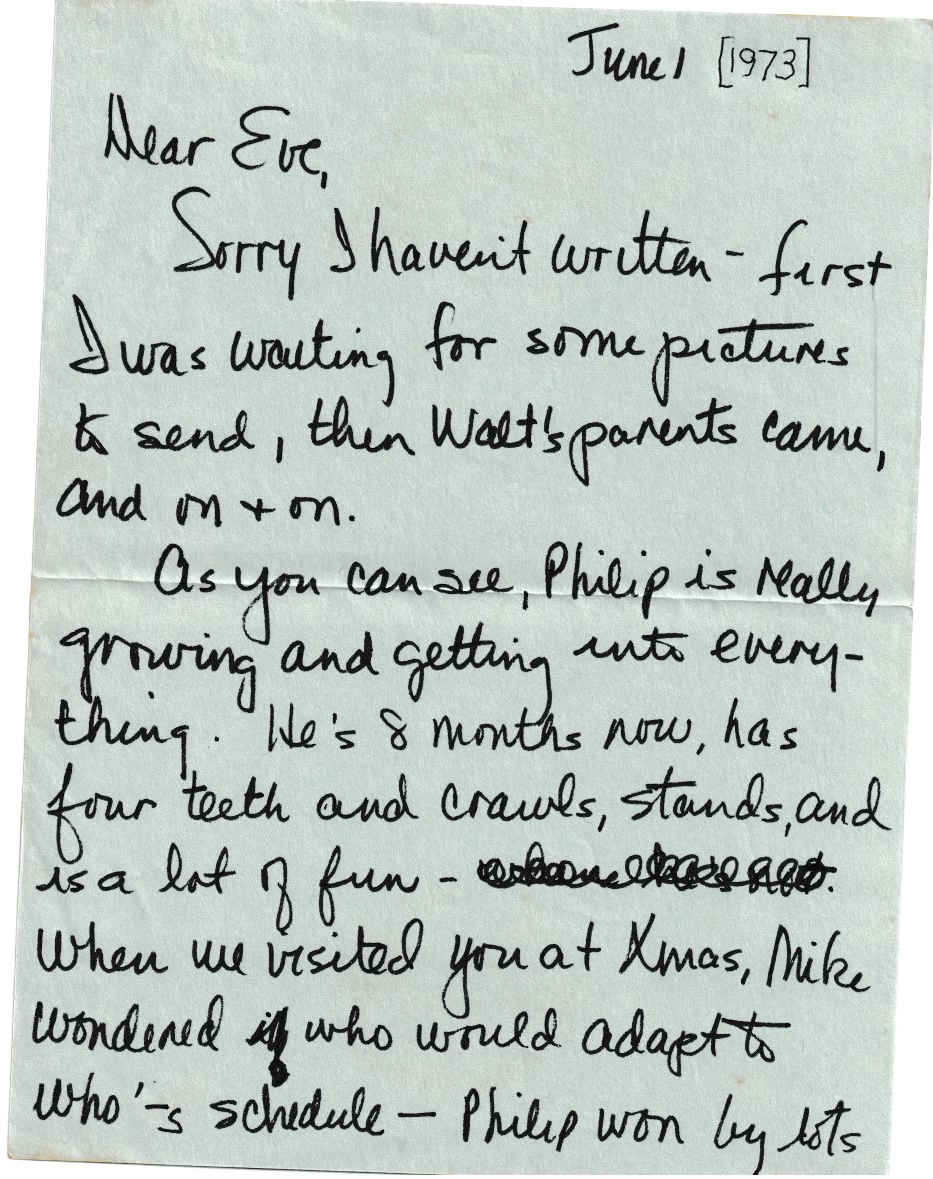 June 1 [1973]
Dear Eve,
Sorry I haven't written - first
I was waiting for some pictures
to send, then Walt's parents came,
and on + on.
As you can see, Philip is really
growing and getting into every-
thing. He's 8 months now, has
four teeth and crawls, stands, and
is a lot of fun -
When we visited you at Xmas, Mike
wondered if who would adapt to
who'-s schedule - Philip won by lots